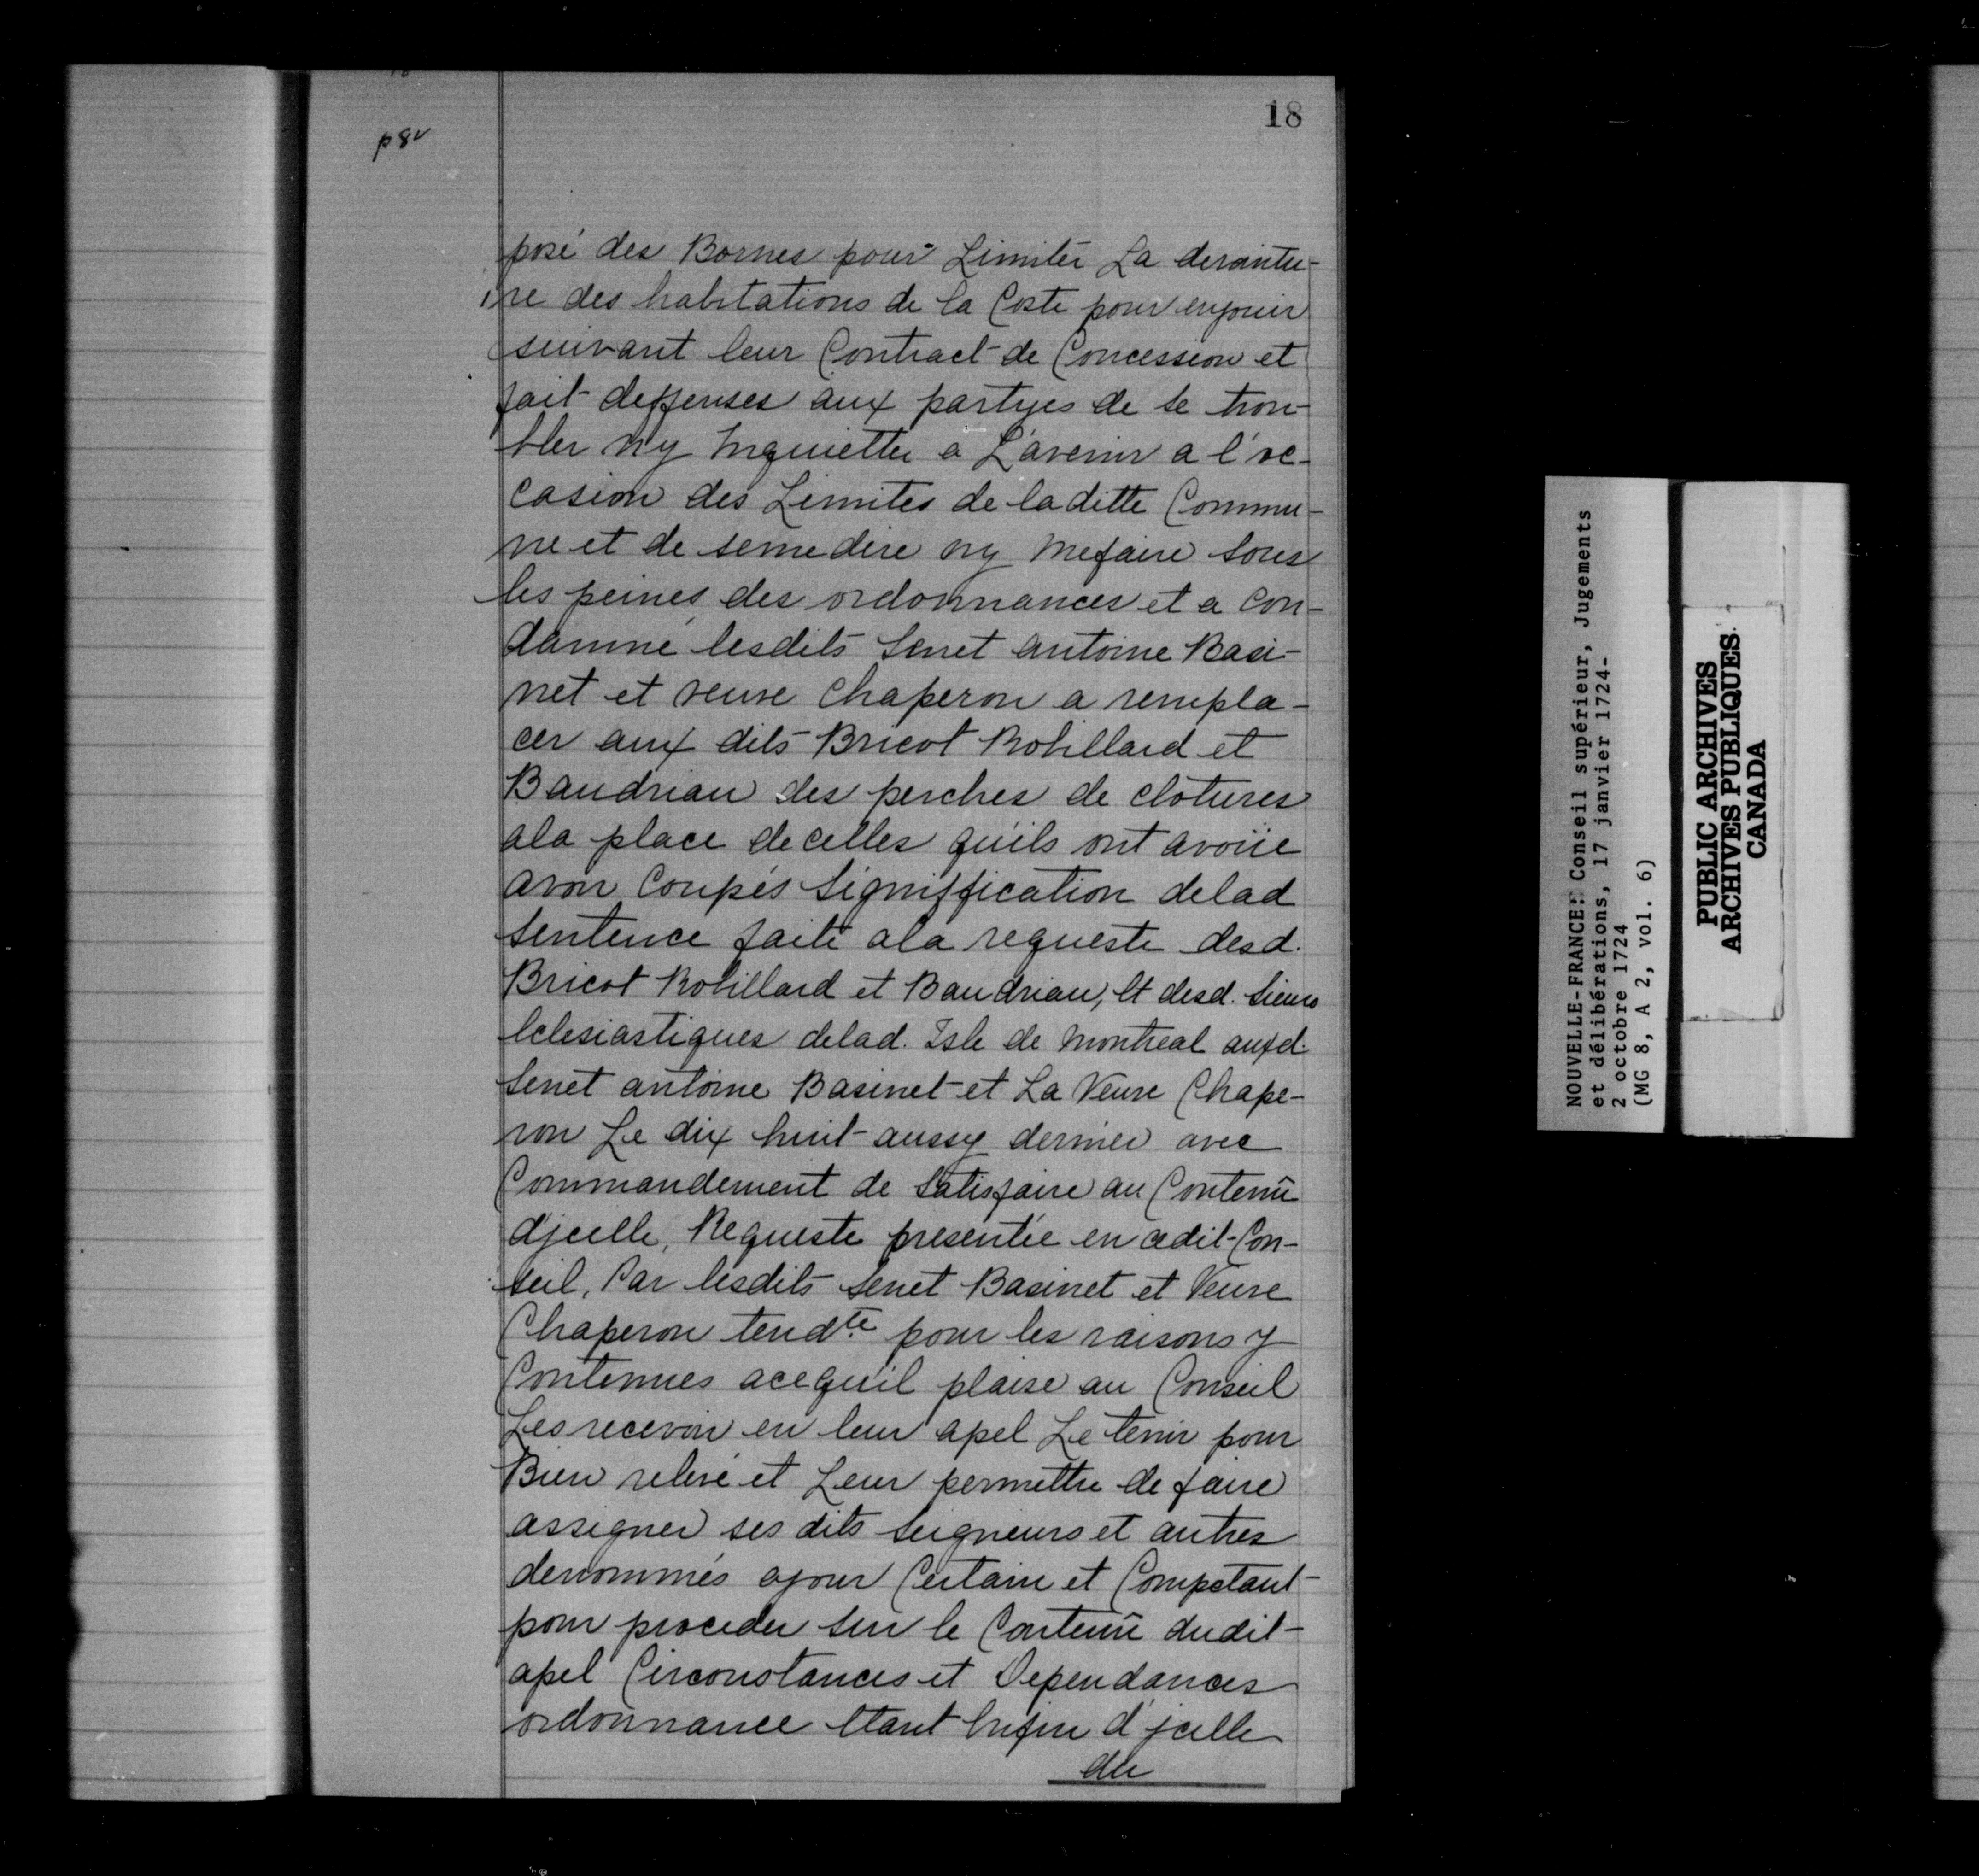 18
p 8v
posé des Bornes pour Limiter La devantu-
re des habitations de la Coste pour enjouir
suivant leur Contract de Concession et
fait deffenses aux partyes de se trou-
bler ny Inquietter a L'avenir a l'oc-
casion des Limites de laditte Commu-
ne et de semedire ny mefaire sous
les peines des ordonnances et a Con-
damné lesdits Senet antoine Basi-
net et veuve Chaperon a rempla-
cer aux dits Bricot Robillard et
Baudriau des perches de clôtures
ala place decelles quils ont avoüe
avoir Coupés Signiffication delad
Sentence faite ala requeste desd.
Bricot Robillard et Baudriau, Et desd. Sieurs
Eclesiastiques delad. Isle de Montreal auxd.
Senet antoine Basinet et La Veuve Chape-
ron Le dix huit aussy dernier avec
Commandement de Satisfaire au Contenû
d'jcelle, Requeste presentée en cedit Con-
seil, Par lesdits Senet Basinet et Veuve
Chaperon tendte pour les raisons y
Contenues acequ'il plaise au Conseil
Les recevoir en leur apel Le tenir pour
Bien relevé et Leur permettre de faire
assigner ses dits Seigneurs et autres
denommés ajour Certain et Competant
pour proceder sur le Contenû dudit
apel Circonstances et Dependances
ordonnance Etant Enfin d'jcelle
du
NOUVELLE-FRANCE: Conseil supérieur, Jugements
et délibérations, 17 janvier 1724-
2 octobre 1724
(MG 8, A 2, vol. 6)
PUBLIC ARCHIVES
ARCHIVES PUBLIQUES
CANADA